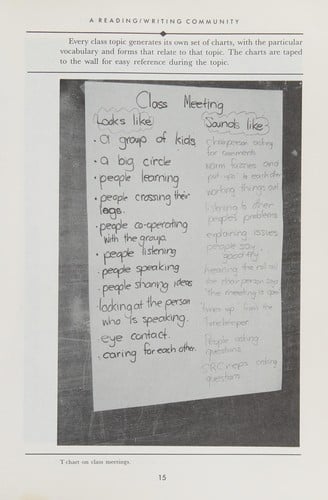 A READING/WRITING COMMUNITY
Every class topic generates its own set of charts, with the particular
vocabulary and forms that relate to that topic. The charts are taped
to the wall for easy reference during the topic.
Class Meeting
Looks like
• a group of kids
• a big circle
• people learning
• people crossing their
legs.
• people co-operating
with the group.
• people listening
• people speaking
• people sharing ideas
• looking at the person
who is speaking.
• eye contact.
• caring for each other.
Sounds like
Chairperson asking
for comments
warm fuzzies and
put ups to each other
working things out
listening to other
peoples problems
explaining issues
people say
good
hearing the roll call
the chair person say
the meeting is open
times up from the
timekeeper
People asking
questions
SRC reps asking
questions.
T-chart on class meetings.
15